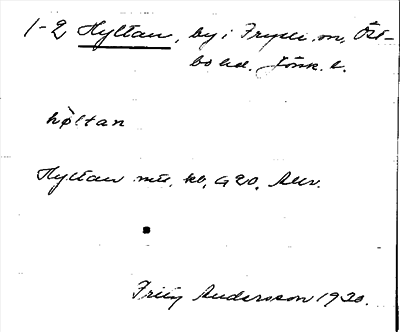 1-2 Hyltan, by i Fryele sn, Öst-
bo hd. Jönk. l.
hỳltan
Hyltan mtl, kb, G 20, Allm.
Fritz Andersson 1920.